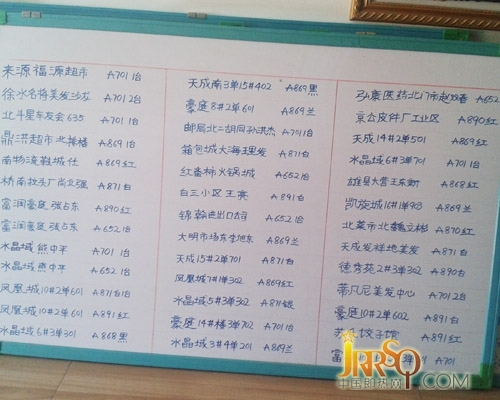 来源福源超市 A701 1台
徐水名将美发沙龙 A701 2台
北斗星车友会 635 A701 1台
鼎洪超市北祥楼 A869 1台
南物流鞋城仕 A869红
桥南牧头厂尚文强 A871白
富润豪庭 强占东 A890红
富润豪庭 强占东 A652台
水晶域 熊中平 A701 1台
水晶域 熊中平 A652 1台
凤凰城10#2单601 A871白1台
凤凰城10#2单601 A891红
水晶域6#3单301 A868黑
天成南3单15#402 A869黑
豪庭8#2单601 A869兰
邮局北二胡同孙洪杰 A701台
箱包城大海理发 A871台
红番柿火锅城 A652台
白三小区王宾 A891台
锦翰进出口公司 A652 1台
大明市场东李旭东 A869兰
天成15#2单701 A871台
凤凰城7#1单302 A869红
水晶域5#3单302 A871银
豪庭14#楼3单702 A701台
水晶城3#4单201 A869兰
弘康医药北门市赵双春 A652
京企皮件厂工业区 A890红
天成14#2单501 A869红
水晶域6#3单701 A871台
雄县大营王东新 A868红
凯旋城16#1单903 A869兰
北菜市北魏文彬 A870红
天成发祥地美发 A871台
德秀苑2#3单302 A890台
蒂凡尼美发中心 A701 2台
豪庭10#2单602 A891台
饺子馆 A891红
富 A701
JRRSQ.COM
中国即热网